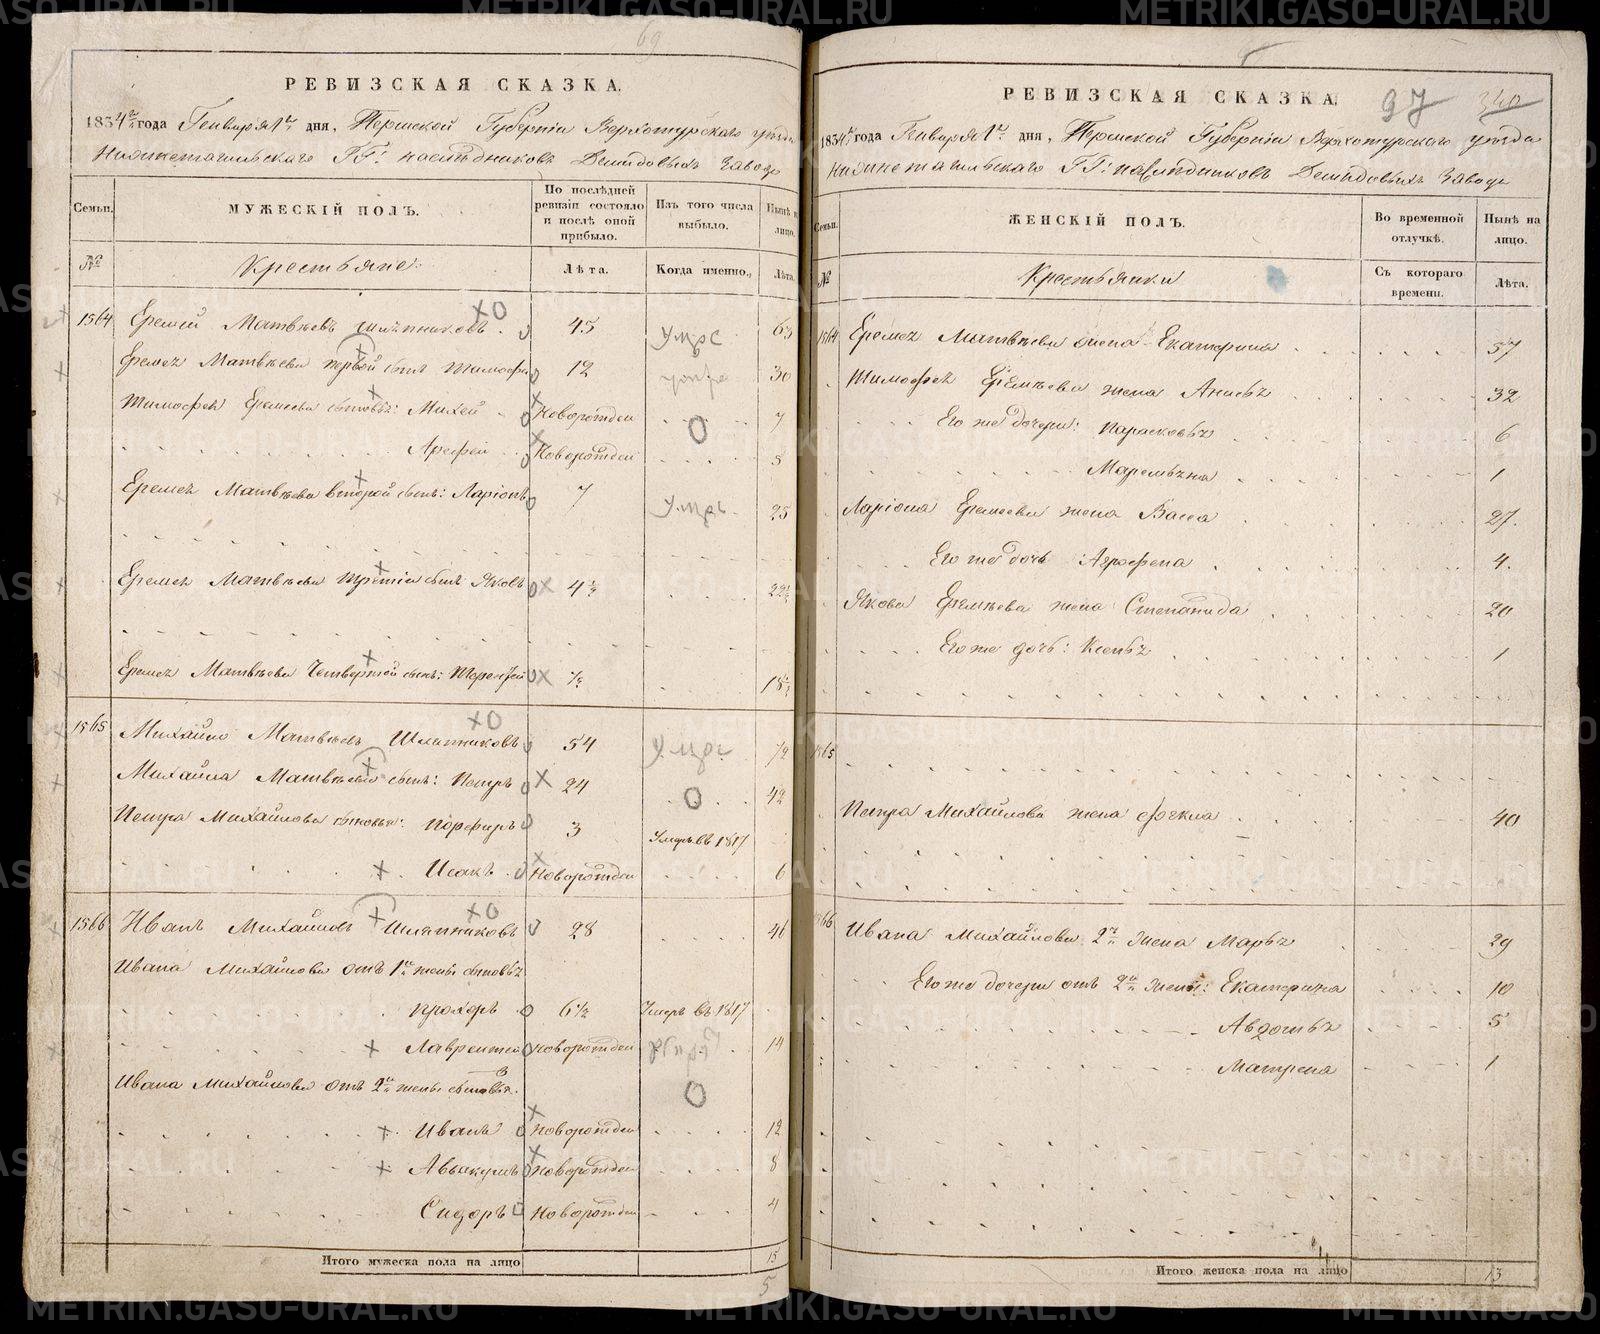 69
РЕВИЗСКАЯ СКАЗКА.
1834го года Генваря 1го дня, Пермской Губернiи Верхотурскаго уѣзда
Нижнетагильскаго ГГ: наслѣдниковъ Демидовыхъ Завода
Семьи.
МУЖЕСКIЙ ПОЛЪ.
По послѣдней ревизiи состояло и послѣ оной прибыло.
Изъ того числа выбыло.
Нынѣ на лицо.
№
Крестьяне:
Лѣта.
Когда именно.
Лѣта.
1564 Еремей Матвѣевъ Шляпниковъ. 45 умре 63
Еремея Матвѣева первой сынъ Тимофей 12 умре 30
Тимофея Еремеева сыновья: Михей Новорожден 7
Арефей Новорожден 3
Еремея Матвѣева второй сынъ: Ларiонъ 7 умре 25
Еремея Матвѣева третiй сынъ Яковъ 4½ 22½
Еремея Матвѣева Четвертой сынъ: Терентей ½ 18½
1565 Михайло Матвѣевъ Шляпниковъ 54 умре 72
Михайла Матвѣева сынъ: Петръ 24 42
Петра Михайлова сыновья: Порфиръ 3 Умеръ въ 1817
Исакъ Новорожден 6
1566 Иванъ Михайловъ Шляпниковъ 28 46
Ивана Михайлова отъ 1й жены сыновья
Прохоръ 6½ Умеръ въ 1817
Лаврентей Новорожден 14
Ивана Михайлова отъ 2й жены сыновья.
Иванъ Новорожден 12
Авакумъ Новорожден 8
Сидоръ Новорожден 4
Итого мужеска пола на лицо 15
5
97 340
РЕВИЗСКАЯ СКАЗКА.
1834го года Генваря 1го дня, Пермской Губернiи Верхотурскаго уѣзда
Нижнетагильскаго ГГ: наслѣдниковъ Демидовыхъ Завода
Семьи.
ЖЕНСКIЙ ПОЛЪ.
Во временной отлучкѣ.
Нынѣ на лицо.
№
Крестьянки
Съ котораго времени.
Лѣта.
1564 Еремея Матвѣева жена Екатерина 57
Тимофея Еремѣева жена Анисья 32
Его же дочери: Парасковья 6
Маремьяна 1
Ларiона Еремеева жена Васса 27.
Его же дочь: Агрофена 4.
Якова Еремѣева жена Степанида 20
Его же дочь: Ксенья 1
1565
Петра Михайлова жена Фекла 40
1566 Ивана Михайлова 2я жена Марья 29
Его же дочери отъ 2й жены: Екатерина 10
Авдотья 5
Матрена 1
Итого женска пола на лицо 13
METRIKI.GASO-URAL.RU